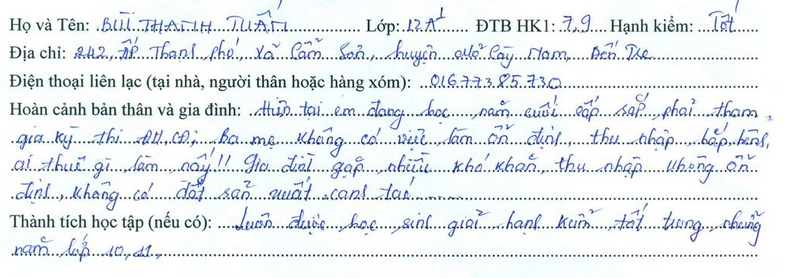 Họ và Tên: BÙI THANH TUẤN Lớp: 12A1 ĐTB HK1: 7,9 Hạnh kiểm: Tốt
Địa chỉ: 242, ấp Thanh phó, xã Cẩm Sơn, huyện Mỏ Cày Nam, Bến Tre
Điện thoại liên lạc (tại nhà, người thân hoặc hàng xóm): 01677385730
Hoàn cảnh bản thân và gia đình: Hiện tại em đang học năm cuối cấp sắp phải tham
gia kỳ thi ĐH, CĐ; Ba mẹ không có việc làm ổn định, thu nhập bấp bênh,
ai thuê gì làm nấy!! Gia đình gặp nhiều khó khăn, thu nhập không ổn
định, không có đất sản xuất canh tác
Thành tích học tập (nếu có): Luôn được học sinh giỏi hạnh kiểm tốt trong những
năm lớp 10, 11,